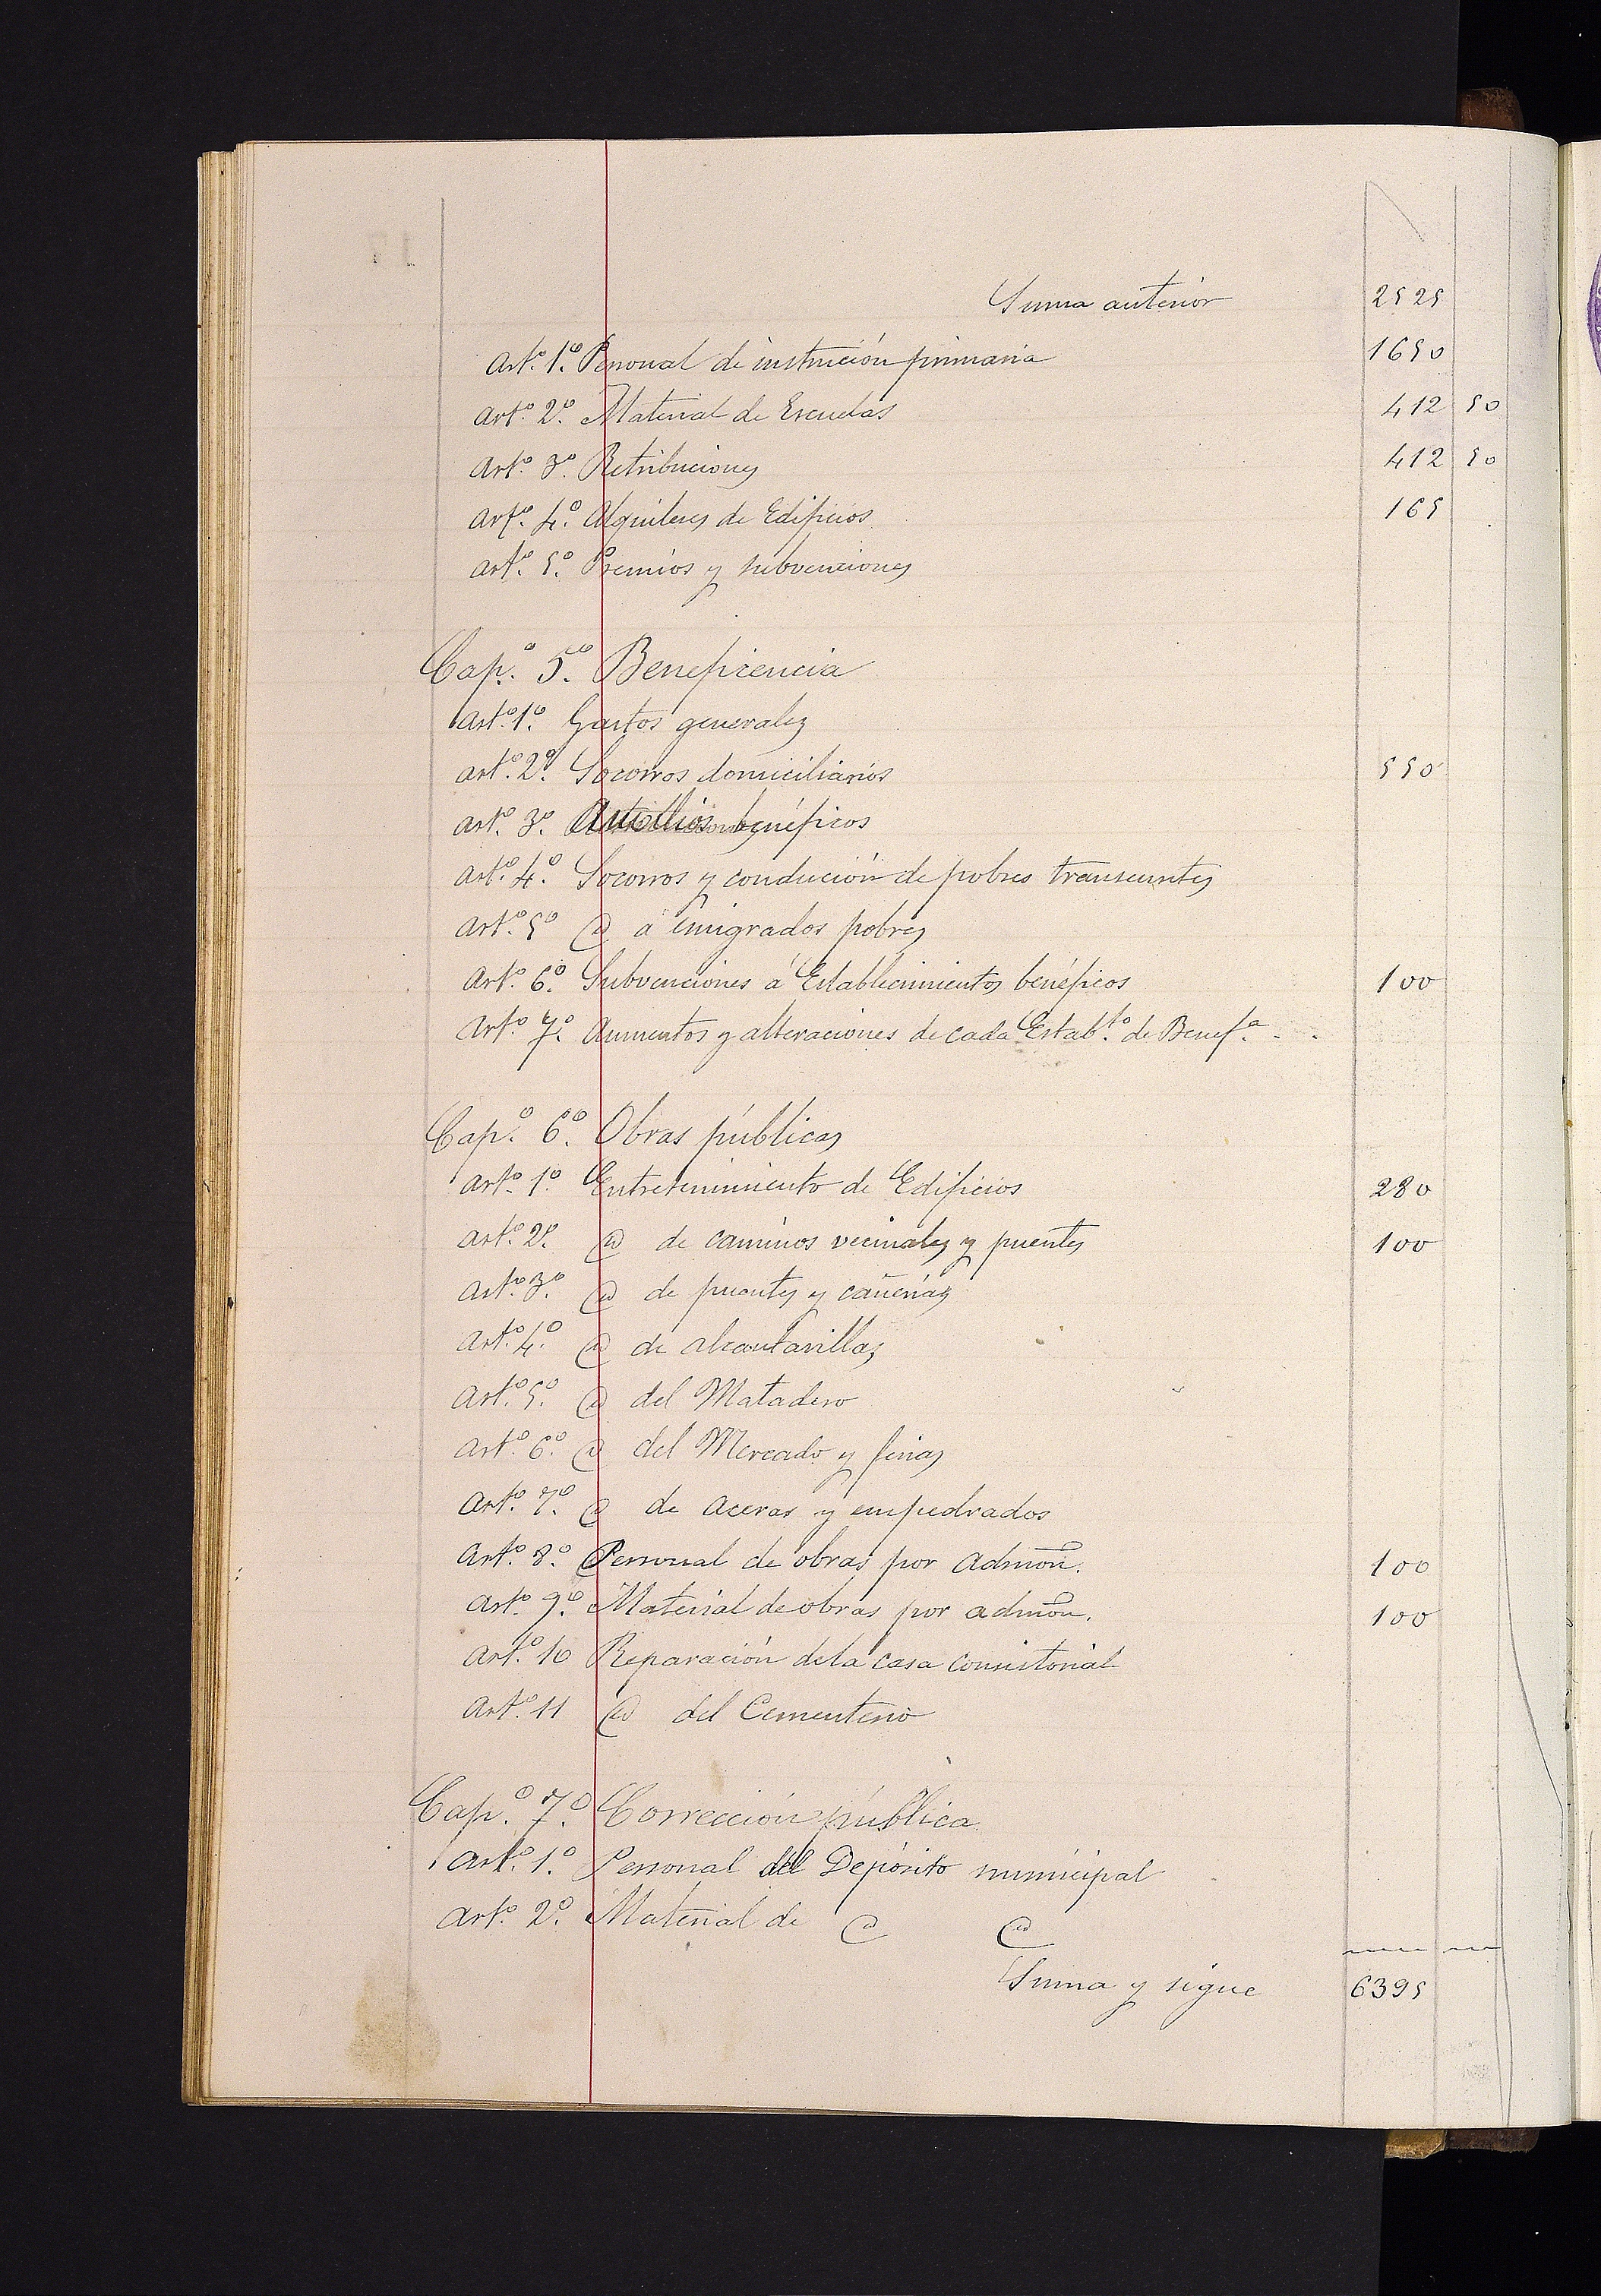 Suma anterior 2525
Artº 1º. Personal de instrución primaria 1650
Artº 2º. Material de Escuelas 412 50
Artº 3º. Retribuciones 412 50
Artº 4º. Alquileres de Edificios 165
Artº 5º. Premios y subvenciones
Capº. 5º. Beneficencia
Artº 1º. Gastos generales
Artº 2º. Socorros domiciliarios 550
Artº 3º. Auxilios benéficos
Artº 4º. Socorros y condución de pobres transeuntes
Artº 5º @ á emigrados pobres
Artº 6º. Subvenciones á Establecimientos benéficos 100
Artº 7º. Aumentos y alteraciones de cada Estabtº. de Benefª. - .
Capº. 6º. Obras públicas
Artº 1º. Entretenimiento de Edificios 280
Artº 2º. @ de caminos vecinales y puentes 100
Artº 3º. @ de fuentes y cañerías
Artº 4º. @ de alcantarillas
Artº 5º. @ del Matadero
Artº 6º. @ del Mercado y ferias
Artº 7º. @ de aceras y empedrados
Artº 8º. Personal de obras por admón. 100
Artº 9º. Material de obras por admón. 100
Artº 10 Reparación dela casa consistorial
Artº 11 @ del Cementerio
Capº. 7º. Corrección pública
Artº 1º. Personal del Depósito municipal
Artº 2º. Material de @ @
Suma y sigue 6395